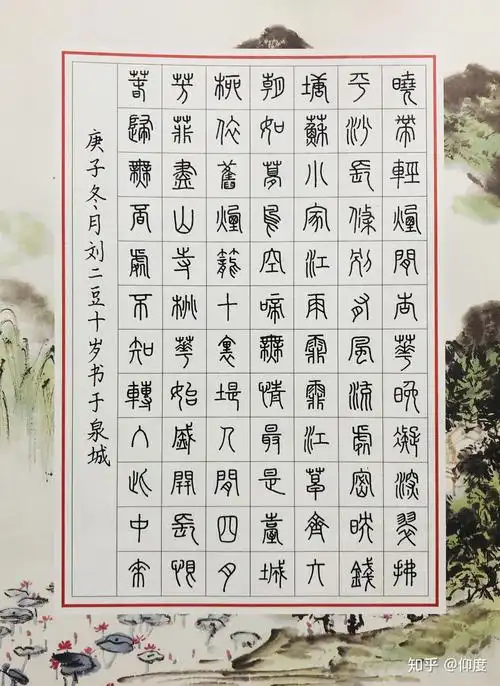 曉帶輕煙間杏華晚凝深翠拂
平沙長條別有風流處密映錢
塘蘇小家江雨霏霏江草齊六
朝如夢鳥空啼無情最是臺城
柳依舊煙籠十里堤人間四月
芳菲盡山寺桃華始盛開長恨
春歸無覓處不知轉入此中來
庚子冬月刘二豆十岁书于泉城
知乎 @仰度